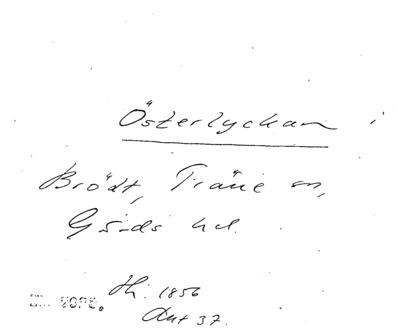 Österlyckan i
Brödt, Träne sn,
Gärds hd.
Hi. 1856
Ant 37.